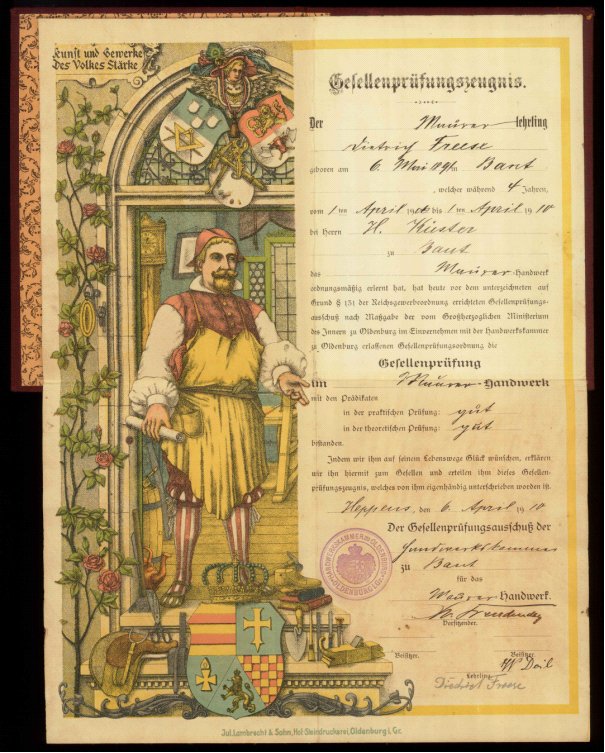 Kunst und Gewerke
Des Volkes Stärke
Gesellenprüfungszeugnis.
Der Maurer lehrling
Dietrich Freese
geboren am 6. Mai 189 in Bant
, welcher während 4 Jahren,
vom 1ten April 19 bis 1ten April 1910
bei Herrn H. Küster
zu Bant
das Maurer-Handwerk
ordnungsmäßig erlernt hat, hat heute vor dem unterzeichneten auf
Grund § 131 der Reichsgewerbeordnung errichteten Gesellenprüfungs-
ausschuß nach Maßgabe der vom Großherzoglichen Ministerium
des Innern zu Oldenburg im Einvernehmen mit der Handwerkskammer
zu Oldenburg erlassenen Gesellenprüfungsordnung die
Gesellenprüfung
im Maurer-Handwerk
mit den Prädikaten
in der praktischen Prüfung: gut
in der theoretischen Prüfung: gut
bestanden.
Indem wir ihm auf seinem Lebenswege Glück wünschen, erklären
wir ihn hiermit zum Gesellen und erteilen ihm dieses Gesellen-
prüfungszeugnis, welches von ihm eigenhändig unterschrieben worden ist.
Heppens, den 6. April 1910
Der Gesellenprüfungsausschuß der
Handwerkskammer
zu Bant
für das
Maurer-Handwerk.
Vorsitzender.
HANDWERKSKAMMER OLDENBURG
Beisitzer. Beisitzer.
Lehrling
Dietrich Freese
Jul. Lambrecht & Sohn, Hof-Steindruckerei, Oldenburg i. Gr.